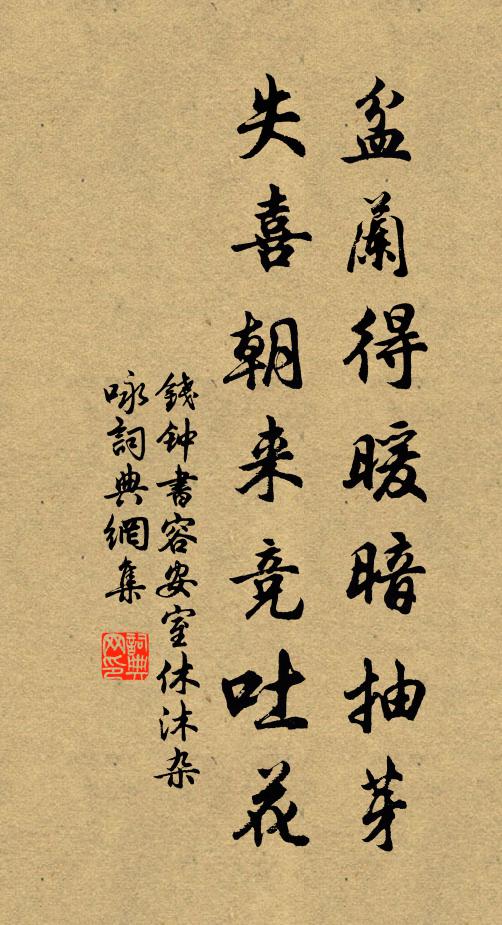 盆蘭得暖暗抽芽
失喜朝来竞吐花
錢钟書容安室休沐杂
咏詞典網集
詞典
网印